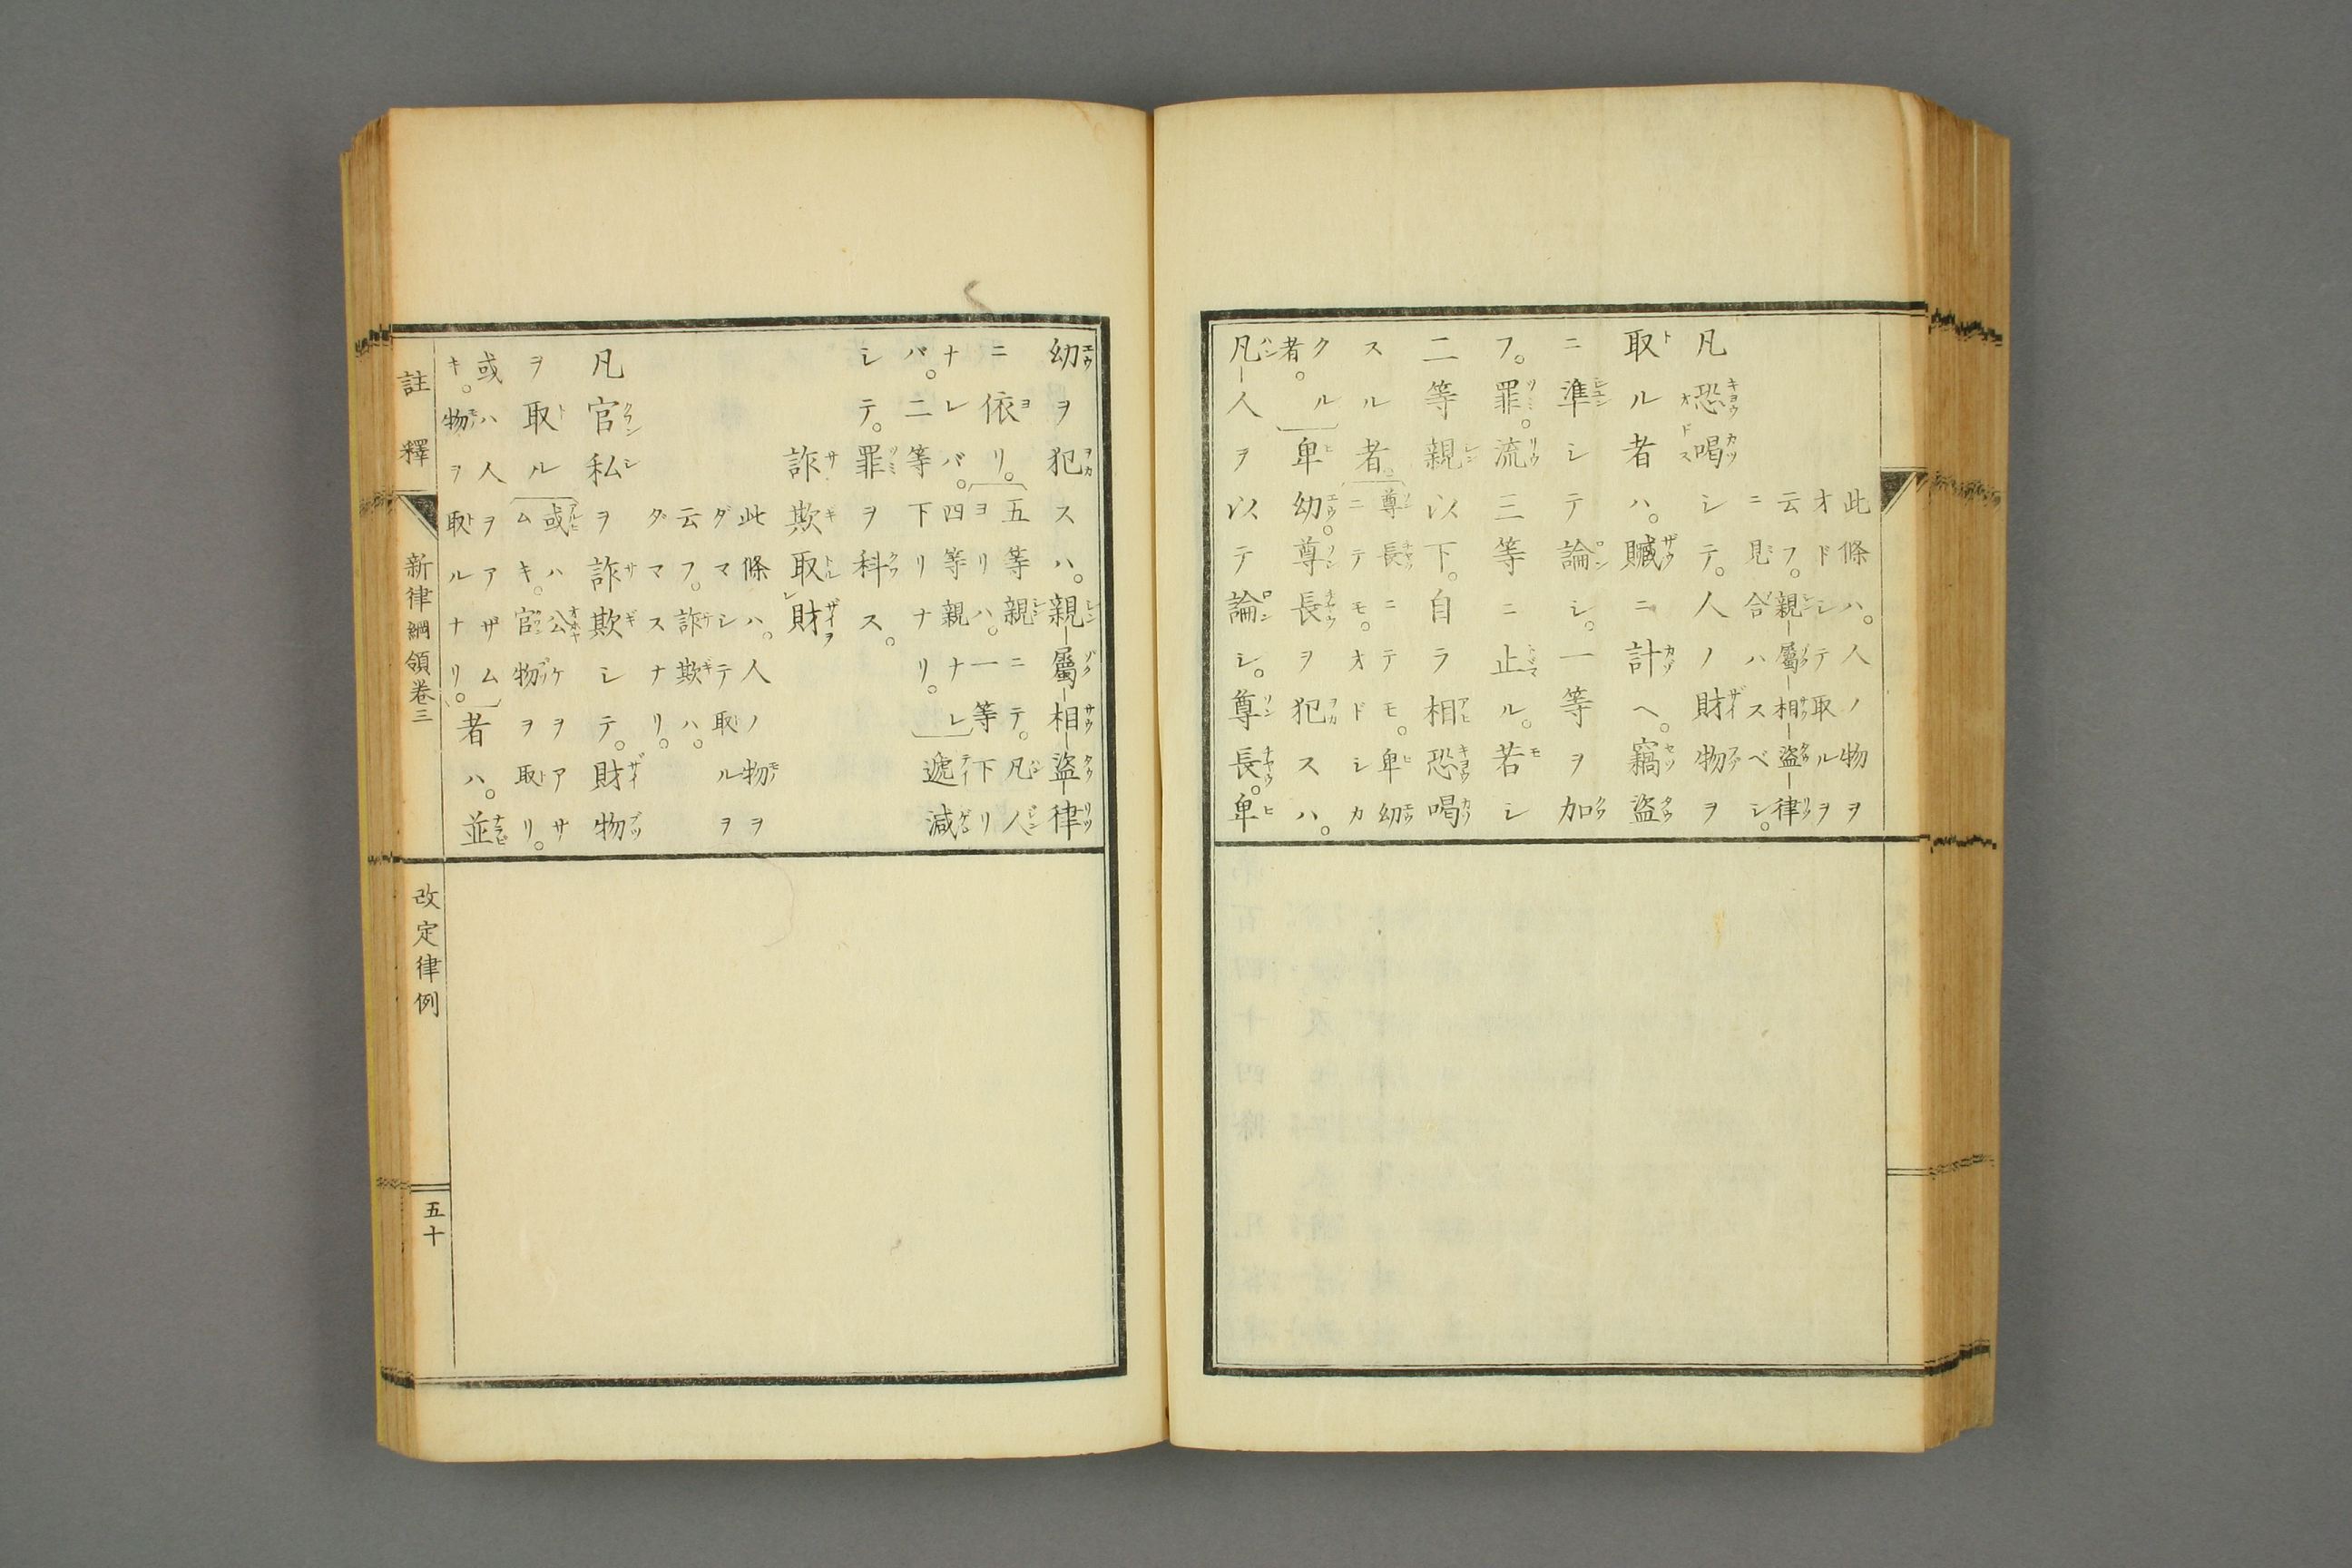 此條ハ。人ノ物ヲ
オドシテ取ルヲ
云フ。親屬相盜律
ニ見合ハスベシ。
凡恐喝シテ。人ノ財物ヲ
取ル者ハ。贓ニ計ヘ。竊盜
ニ準シテ論シ。一等ヲ加
フ。罪流三等ニ止ル。若シ
二等親以下。自ラ相恐喝
スル者。尊長ニテモ。卑幼
ニテモ。オドシカ
クル
者。卑幼。尊長ヲ犯スハ。
凡人ヲ以テ論シ。尊長。卑
幼ヲ犯スハ。親屬相盜律
ニ依リ。五等親ニテ。凡人
ヨリハ。一等下リ
ナレバ。四等親ナレ
バ。二等下リナリ。遞減
シテ。罪ヲ科ス。
詐欺取財
此條ハ。人ノ物ヲ
ダマシテ取ルヲ
云フ。詐欺ハ。
ダマスナリ。
凡官私ヲ詐欺シテ。財物
ヲ取ル或ハ公ケヲアサ
ムキ。官物ヲ取リ。
或ハ人ヲアザム
キ。物ヲ取ルナリ。者ハ。並
註釋
新律綱領卷三
改定律例
五十